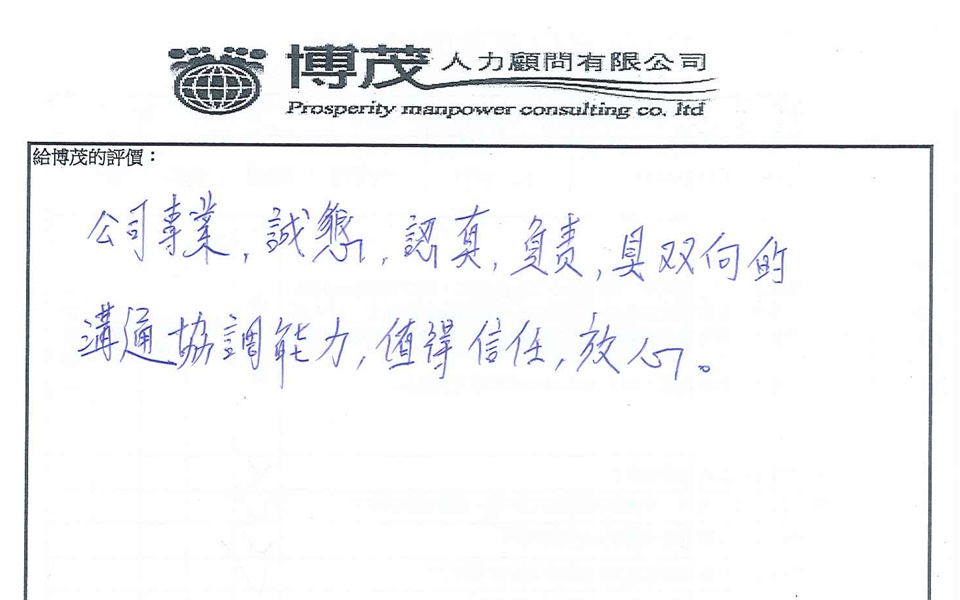 博茂人力顧問有限公司
Prosperity manpower consulting co. ltd
給博茂的評價：
公司專業,誠懇,認真,負責,具双向的
溝通協調能力,值得信任,放心。